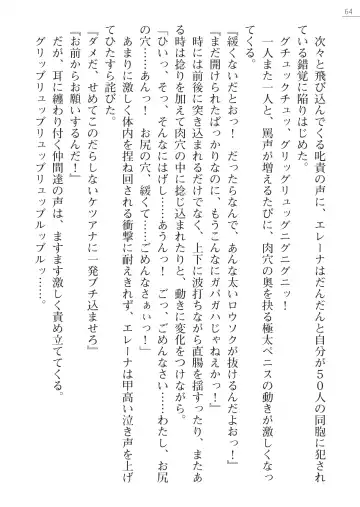 64
次々と飛び込んでくる叱責の声に、エレーナはだんだんと自分が５０人の同胞に犯され
ている錯覚に陥りはじめた。
グチュックチュッ、グリッグリュッグニグニグニッ！
一人また一人と、罵声が増えるたびに、肉穴の奥を抉る極太ペニスの動きが激しくなっ
てくる。
『緩くないだとぉっ！　だったらなんで、あんな太いロウソクが抜けるんだよおっ！』
『まだ開けられたばっかりなのに、もうこんなにガバガバじゃねえかっ！』
時には前後に突き込まれるだけでなく、上下に波打ちながら直腸を揺すったり、またあ
る時は捻りを加えて肉穴の中に捻じ込まれたりと、動きに変化をつけながら。
「ひいっ、そっ、そんなにはげし……ああっ！　ごっ、ごめんなさい……わたし、お尻
の穴……あひいっ！　お尻の穴、緩くて……ごめんなさぁいっ！」
あまりに激しく体内を捏ね回される衝撃に耐えきれず、エレーナは甲高い泣き声を上げ
てひたすら詫びた。
『ダメだ、せめてこのだらしないケツアナに一発ブチ込ませろ』
『お前からお願いするんだ！』
だが、耳に纏わり付く仲間達の声は、ますます激しく責め立ててくる。
グリップリュップリュップリュップルップルッ……。